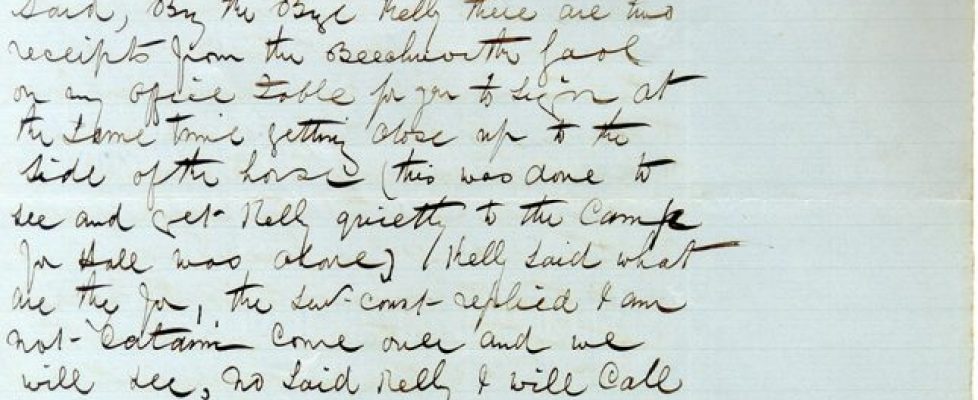 Said, By the Bye Kelly there are two
receipts from the Beechworth Gaol
on my office Table for you to Sign, at
the Same time getting close up to the
Side of the horse (this was done to
see and get Kelly quietly to the Camp
for Hall was, alone) Kelly Said what
are the for, the Sen-Const- replied I am
not- Catain Come over and we
will see, No Said Kelly I will Call